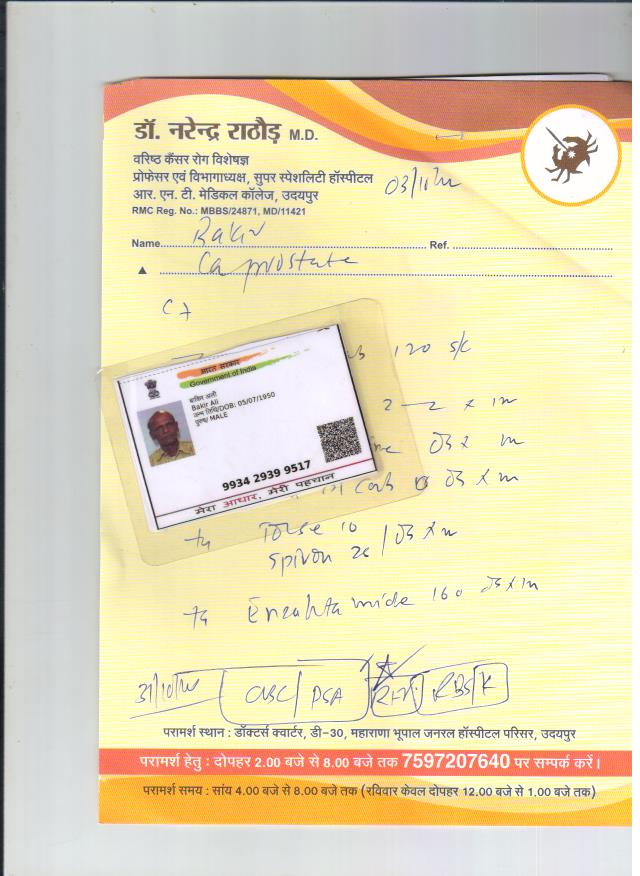 डॉ. नरेन्द्र राठौड़ M.D.
वरिष्ठ कैंसर रोग विशेषज्ञ
प्रोफेसर एवं विभागाध्यक्ष, सुपर स्पेशलिटी हॉस्पीटल
आर. एन. टी. मेडिकल कॉलेज, उदयपुर
RMC Reg. No.: MBBS/24871, MD/11421
Name Bakir Ref.
Ca prostate
120 s/c
भारत सरकार
Government of India
बाकिर अली
Bakir Ali
जन्म तिथि/DOB: 05/07/1950
पुरुष/ MALE
9934 2939 9517
मेरा आधार, मेरी पहचान
2 — 2 x
Torse 10
Enzalutamide 160
CBC/ PSA RFT RBS/K
परामर्श स्थान : डॉक्टर्स क्वार्टर, डी-30, महाराणा भूपाल जनरल हॉस्पीटल परिसर, उदयपुर
परामर्श हेतु : दोपहर 2.00 बजे से 8.00 बजे तक 7597207640 पर सम्पर्क करें।
परामर्श समय : सांय 4.00 बजे से 8.00 बजे तक (रविवार केवल दोपहर 12.00 बजे से 1.00 बजे तक)